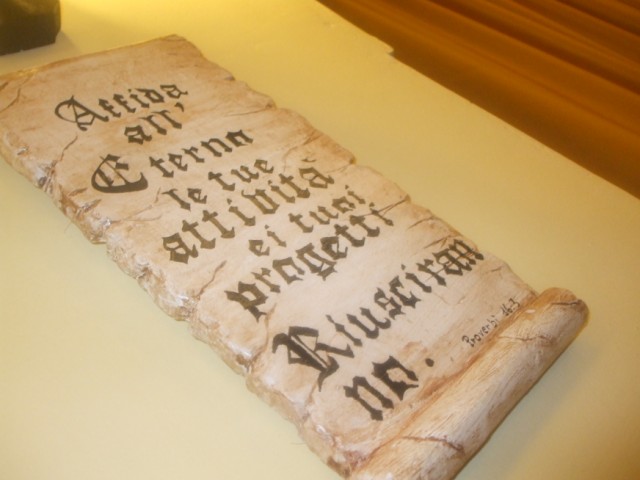 Affida
all'
Eterno
le tue
attività
ei tuoi
progetti
Riusciran
no.
Proverbi 16:3